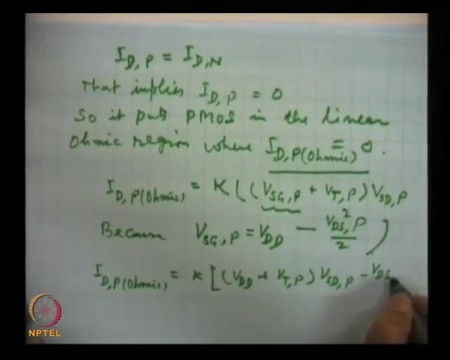 I_D,P = I_D,N
That implies I_D,P = 0
So it puts PMOS in the linear
Ohmic region where I_D,P(Ohmic) = 0.
I_D,P(Ohmic) = K((V_SG,P + V_T,P) V_SD,P
Because V_SG,P = V_DD - V_DS,P^2/2)
I_D,P(Ohmic) = K[(V_DD + V_T,P) V_SD,P - V_DS
NPTEL